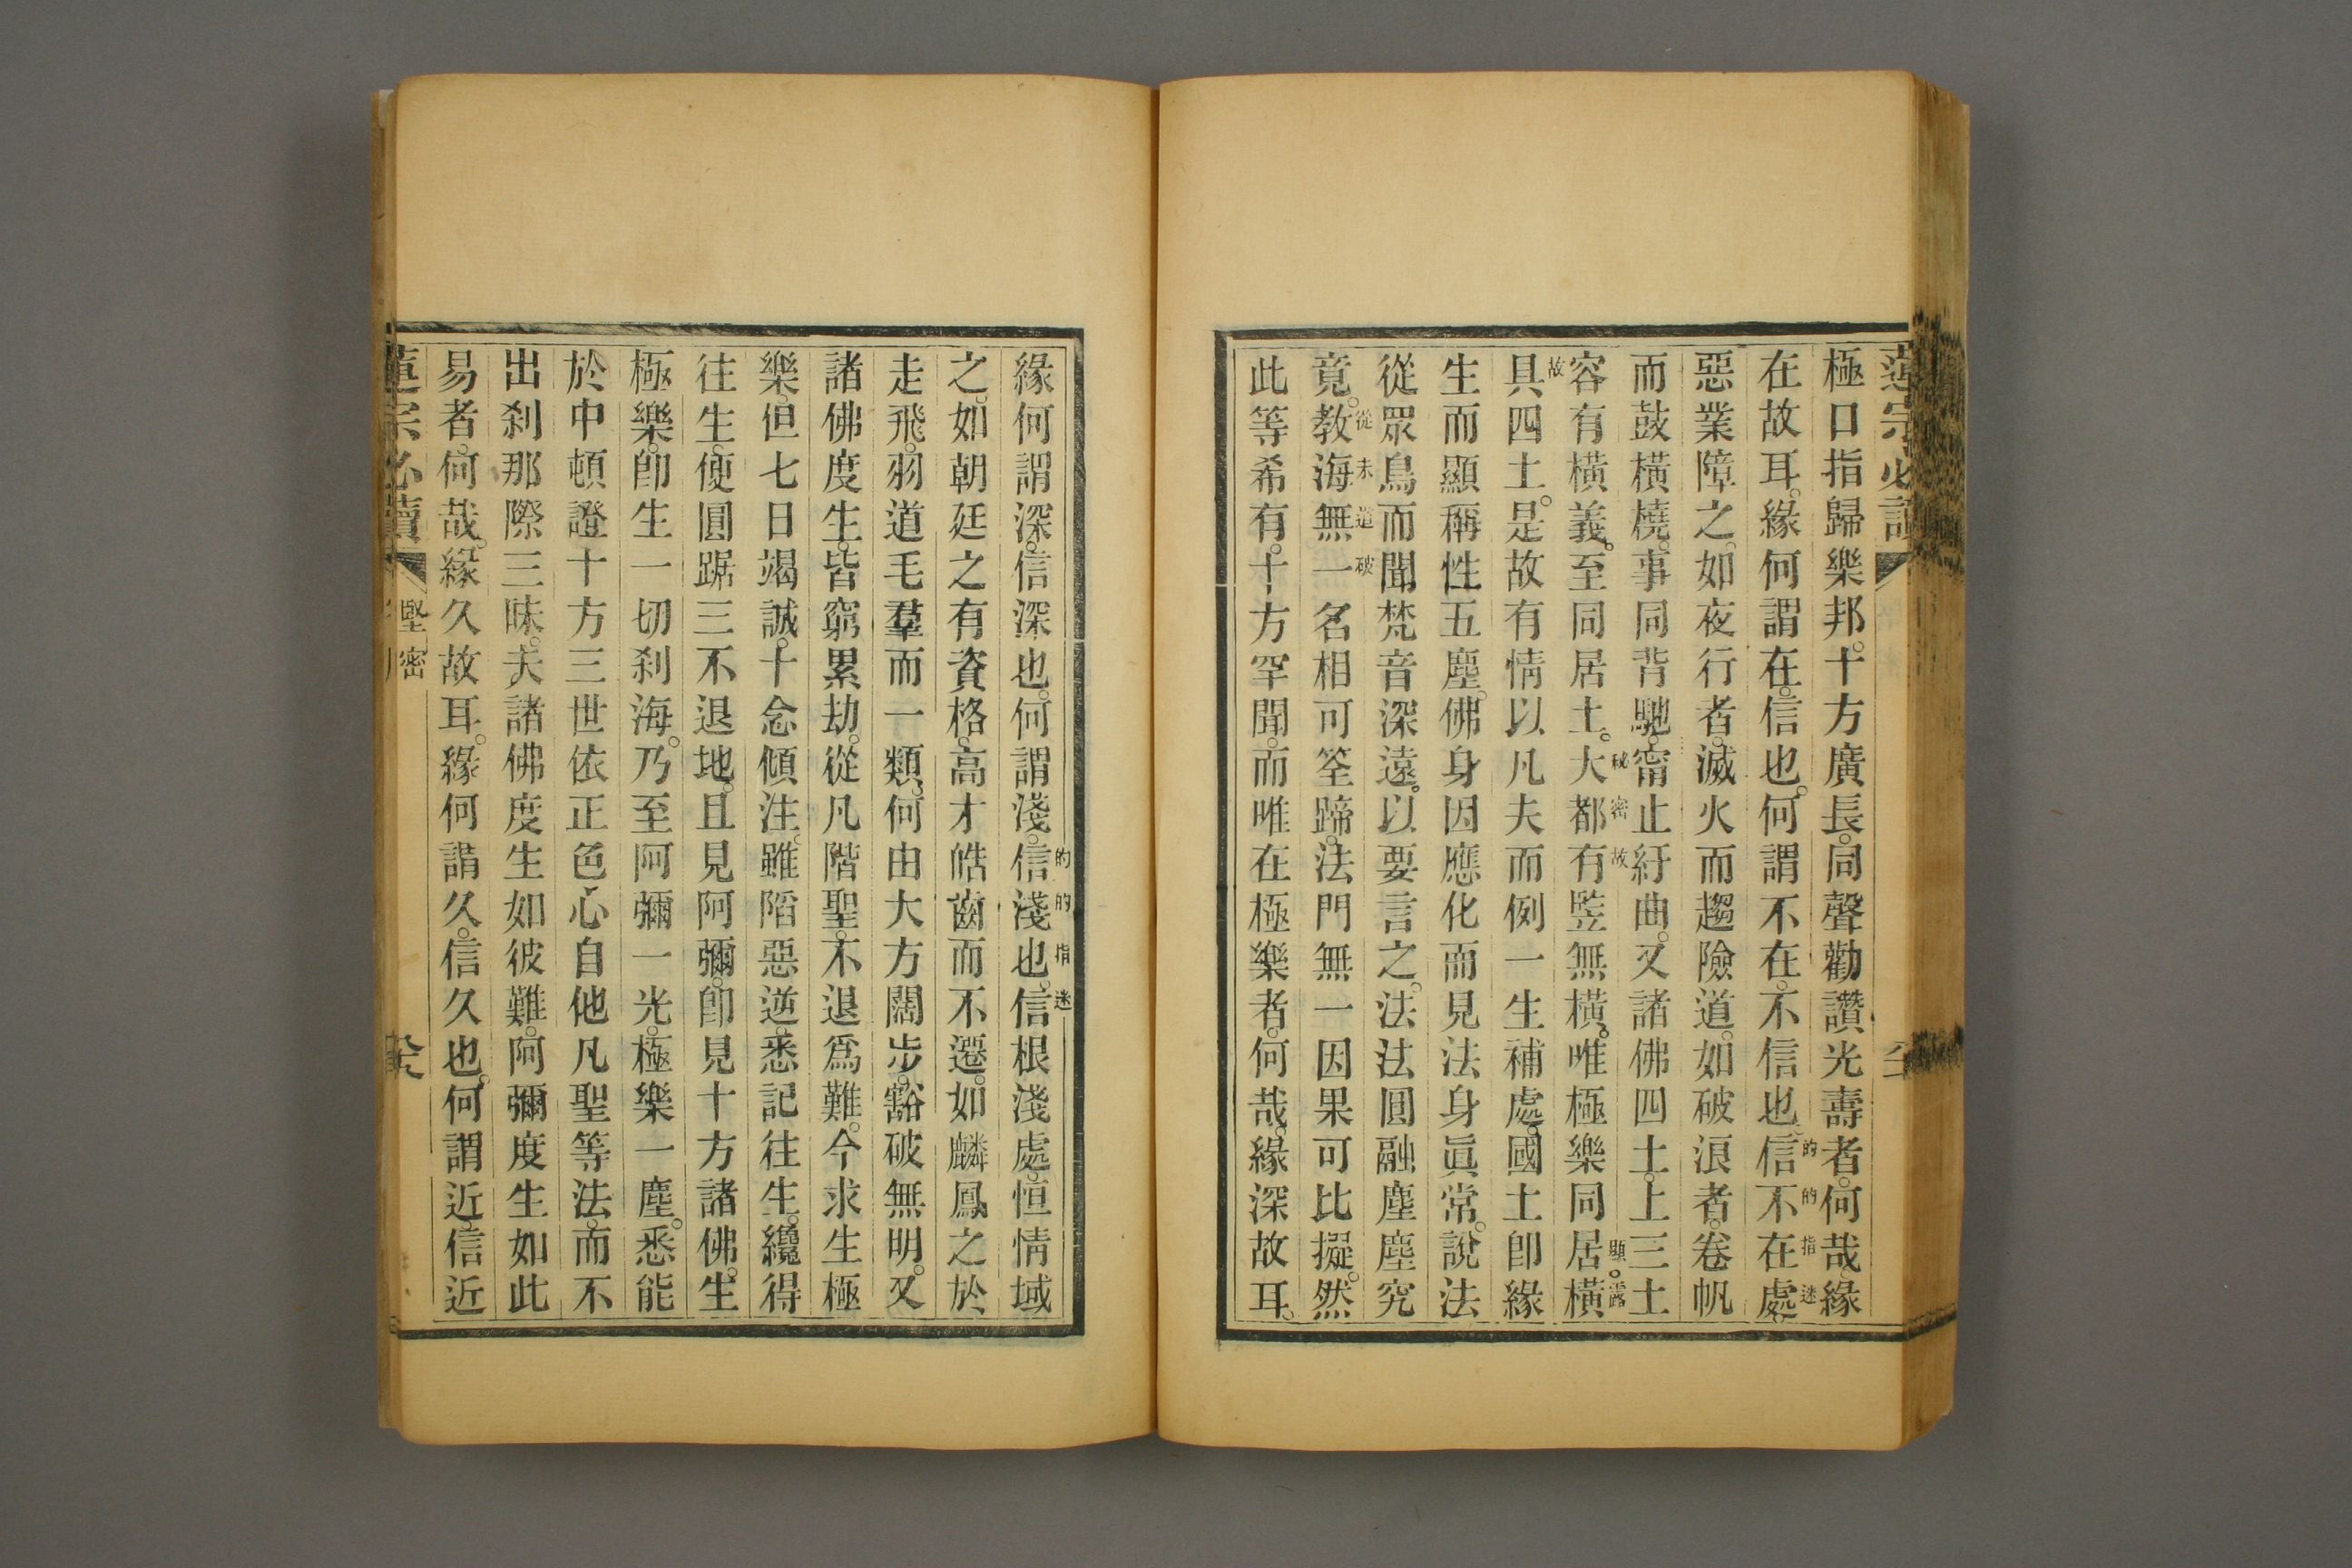 蓮宗必讀
極口指歸樂邦。十方廣長。同聲勸讚光壽者。何哉。緣
在故耳。緣何謂在。信也。何謂不在。不信也。信不在處。
的的指迷
惡業障之。如夜行者。滅火而趨險道。如破浪者。卷帆
而鼓橫橈。事同背馳。甯止紆曲。又諸佛四土。上三土
容有橫義。至同居土。大都有豎無橫。唯極樂同居橫
秘密故
顯露
具四土。是故有情以凡夫而例一生補處。國土卽緣
故
生而顯稱性五塵。佛身因應化而見法身眞常。說法
從眾鳥而聞梵音深遠。以要言之。法法圓融塵塵究
竟。教海無一名相可筌蹄。法門無一因果可比擬。然
從未道破
此等希有。十方罕聞。而唯在極樂者。何哉。緣深故耳。
緣何謂深。信深也。何謂淺。信淺也。信根淺處。恒情域
的的指迷
之。如朝廷之有資格。高才皓齒而不遷。如麟鳳之於
走飛。羽道毛羣而一類。何由大方闊步。豁破無明。又
諸佛度生。皆窮累劫。從凡階聖。不退爲難。今求生極
樂。但七日竭誠。十念傾注。雖陷惡逆。悉記往生。纔得
往生。便圓踞三不退地。且見阿彌。卽見十方諸佛。生
極樂。卽生一切刹海。乃至阿彌一光。極樂一塵。悉能
於中頓證十方三世依正色心自他凡聖等法。而不
出刹那際三昧。夫諸佛度生如彼難。阿彌度生如此
易者。何哉。緣久故耳。緣何謂久。信久也。何謂近。信近
蓮宗必讀
堅密